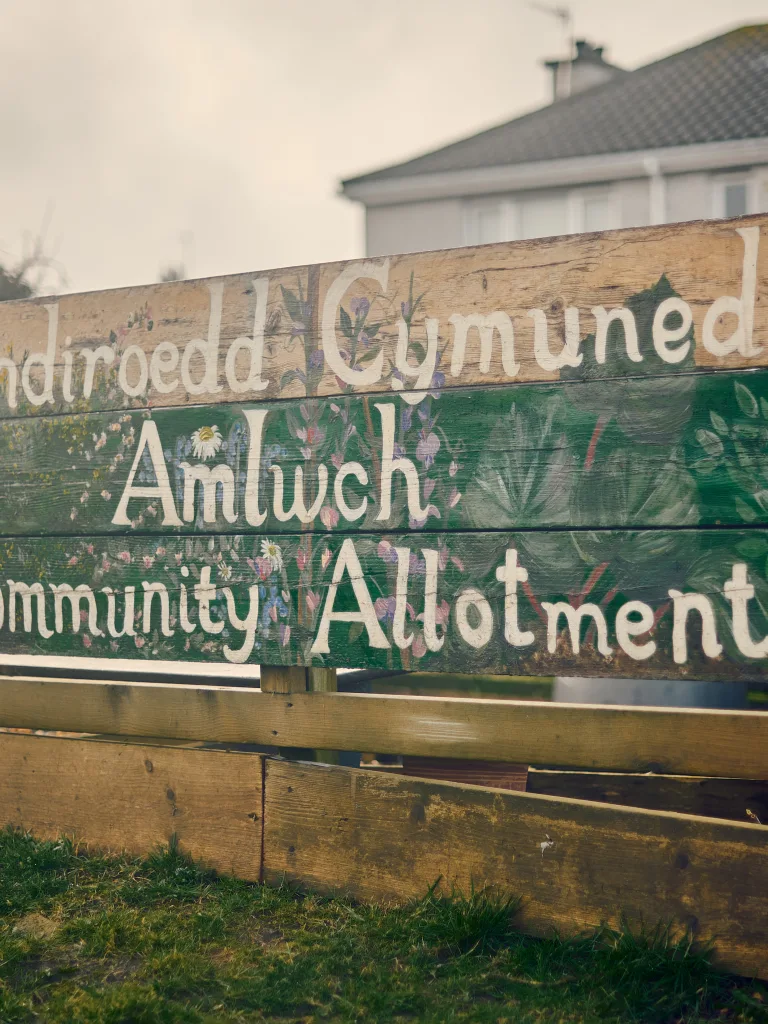 ndiroedd Cymuned
Amlwch
ommunity Allotment